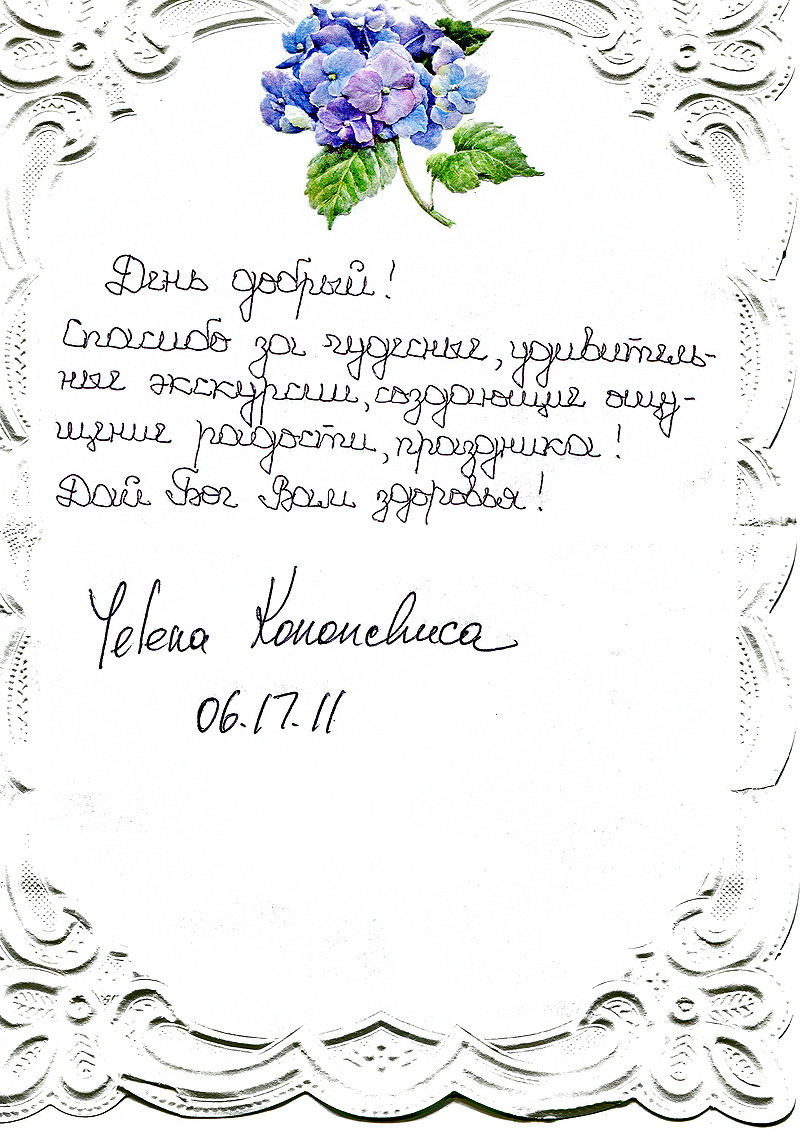 День добрый!
Спасибо за чудесные, удивитель-
ные экскурсии, создающие ощу-
щение радости, праздника!
Дай Бог Вам здоровья!
Yelena Kononchuca
06.17.11